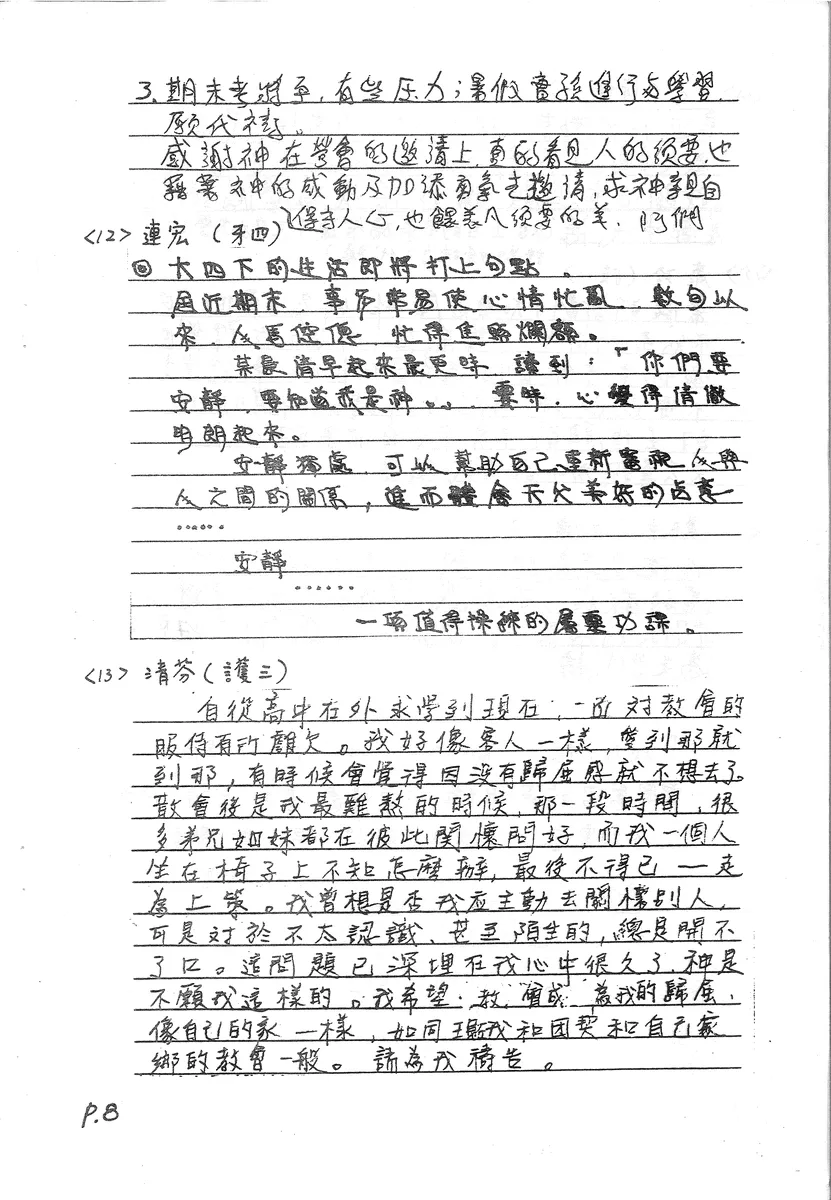 3. 期末考將至，有些压力；暑假實務進行与學習，
願代禱。
感謝神在營會的邀請上，真的看見人的須要，也
藉著神的感動及加添勇氣去邀請，求神親自
保守人心，也餵養凡須要的羊，阿們
<12> 連宏（牙四）
◎ 大四下的生活即將打上句點。
屆近期末，事多常易使心情忙亂，數旬以
來，人馬倥傯，忙得焦頭爛額。
某晨清早起來晨更時，讀到：「你們要
安靜，要知道我是神。」，霎時，心變得清澈
明朗起來。
安靜獨處，可以幫助自己重新審視人與
人之間的關係，進而體會天父美好的旨意
……
安靜
……
一項值得操練的屬靈功課。
<13> 清芬（護三）
自從高中在外求學到現在，一直对教會的
服侍有所虧欠。我好像客人一樣，隻到那就
到那，有時候會覺得因沒有歸屬感就不想去了。
散會後是我最難熬的時候，那一段時間，很
多弟兄姐妹都在彼此関懷問好，而我一個人
坐在椅子上不知怎麼辦，最後不得已——走
為上策。我曾想是否我应主動去關懷別人，
可是対於不太認識、甚至陌生的，總是開不
了口。這問題已深埋在我心中很久了，神是
不願我這樣的。我希望，教會成為我的歸屬，
像自己的家一樣，如同我和团契和自己家
鄉的教會一般。請為我禱告。
P.8